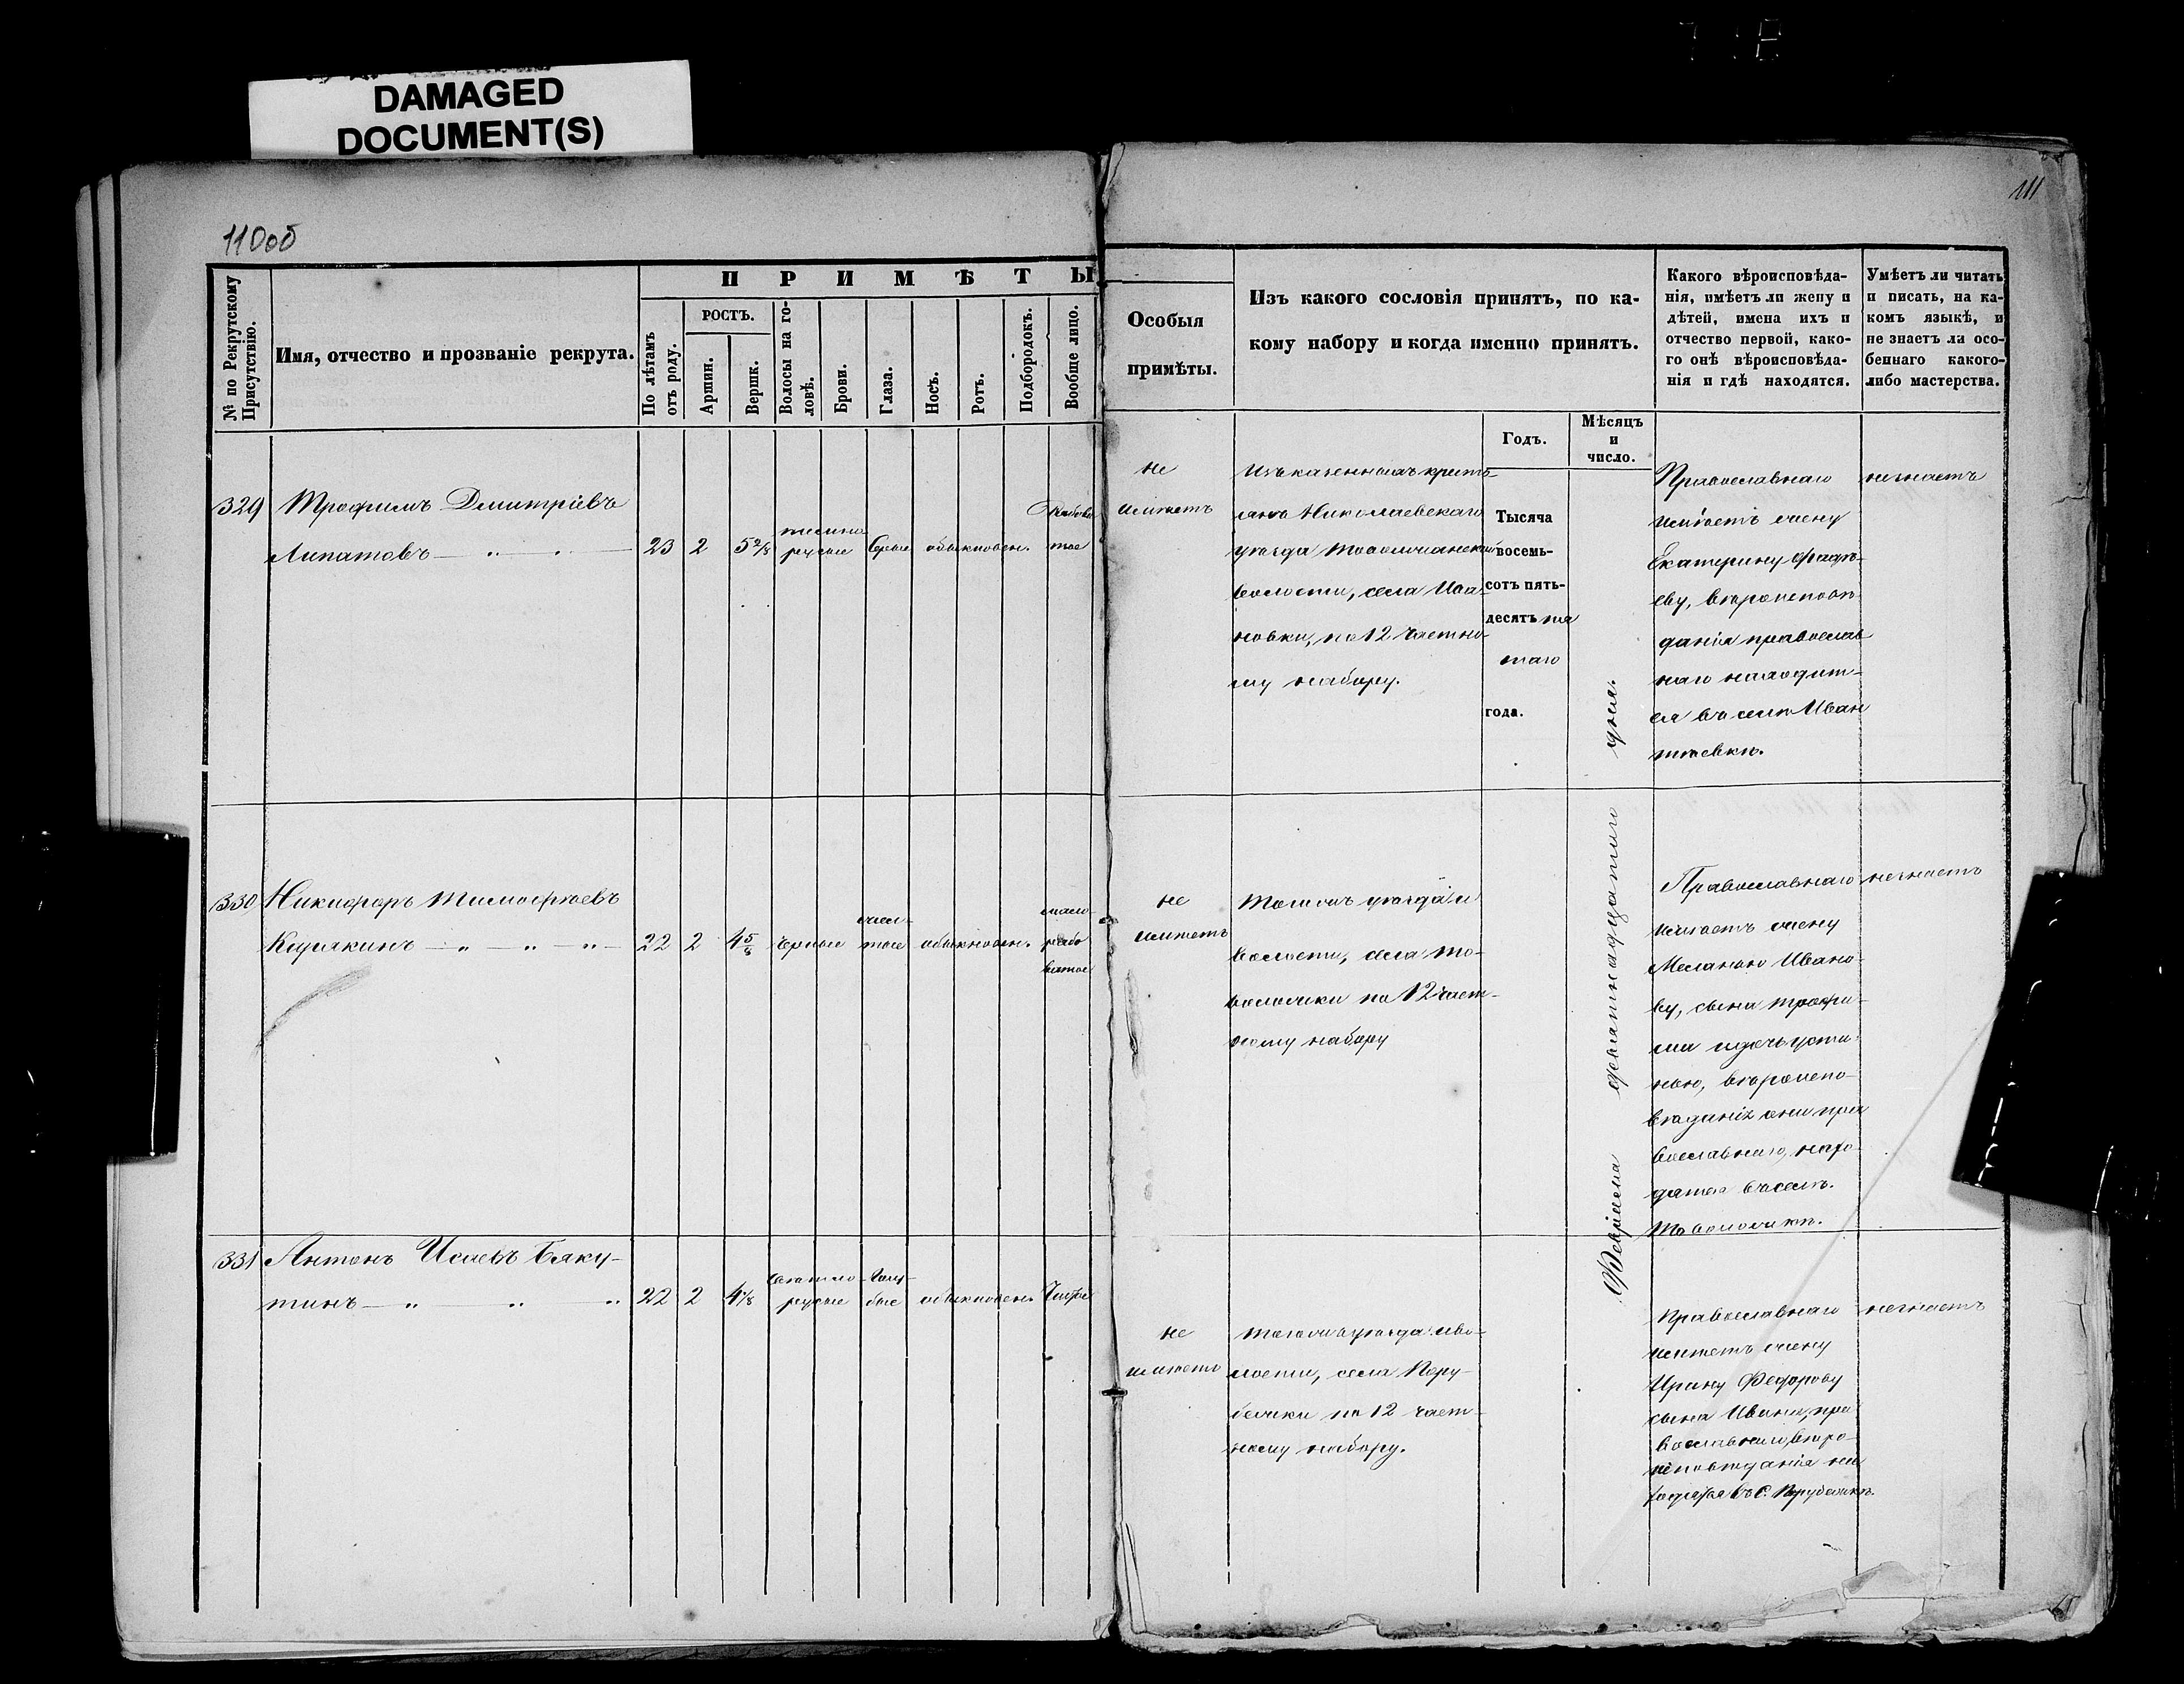 DAMAGED
DOCUMENT(S)
110об
111
№ по Рекрутскому
Присутствію.
Имя, отчество и прозваніе рекрута.
ПРИМѢТЫ
По лѣтамъ
отъ роду.
РОСТЪ.
Аршин.
Вершк.
Волосы на го-
ловѣ.
Брови.
Глаза.
Носъ.
Ротъ.
Подбородокъ.
Вообще лицо.
Особыя
примѣты.
Изъ какого сословія принятъ, по ка-
кому набору и когда именно принятъ.
Годъ.
Мѣсяцъ
и
число.
Какого вѣроисповѣда-
нія, имѣетъ ли жену и
дѣтей, имена ихъ и
отчество первой, како-
го онѣ вѣроисповѣда-
нія и гдѣ находятся.
Умѣетъ ли читать
и писать, на ка-
комъ языкѣ, и
не знаетъ ли осо-
беннаго какого-
либо мастерства.
329
Трофимъ Дмитріевъ
Липатовъ
23
2
5 2/8
темно
русые
Серые
обыкновен.
Рябова
тое
не
имѣетъ
Изъ казенныхъ кресть-
янъ Николаевскаго
уѣзда
волости, села Ива
новки, по 12 частно-
му набору.
Тысяча
восемь-
сотъ пять-
десятъ пя
таго
года.
Февраля девятнадцатаго дня.
Православнаго
имѣетъ жену
Екатерину Фадѣ-
еву, вѣроисповѣ
данія православ
наго находит-
ся въ селѣ Иван
тѣевкѣ.
незнаетъ
330
Никифоръ Тимофѣевъ
22
2
4 5/8
черные
жел-
тые
обыкновен.
мало-
рябо
ватое
не
имѣетъ
Того жъ уѣзда и
волости, села То-
воложки по 12 част-
ному набору
Православнаго
имѣетъ жену
Меланью Ивано-
ву, сына Трофи-
ма и дочь Усти-
нью, вѣроиспо-
вѣданія они пра
вославнаго, нахо-
дятся въ селѣ.
Товоложкѣ.
незнаетъ
331
Антонъ Исаевъ Бяку-
тинъ
22
2
4 1/8
свѣтло-
русые
Голу-
бые
обыкновен.
Чистое
не
имѣетъ
Того жъ уѣзда и во-
лости, села Пору-
бежки по 12 част-
ному набору.
Православнаго
имѣетъ жену
Ирину Федорову
сына Ивана, пра
вославнаго вѣро-
исповѣданія на
ходятся въ С. Порубежкѣ.
незнаетъ